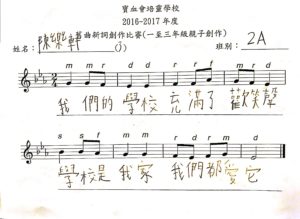 寶血會培靈學校
2016-2017 年度
舊曲新詞創作比賽(一至三年級親子創作)
姓名: 陳樂軒 (1) 班別: 2A
m m r d m m r d r m f r
我們的學校充滿了歡笑聲
s s f m m r d r m r d
學校是我家 我們都愛它